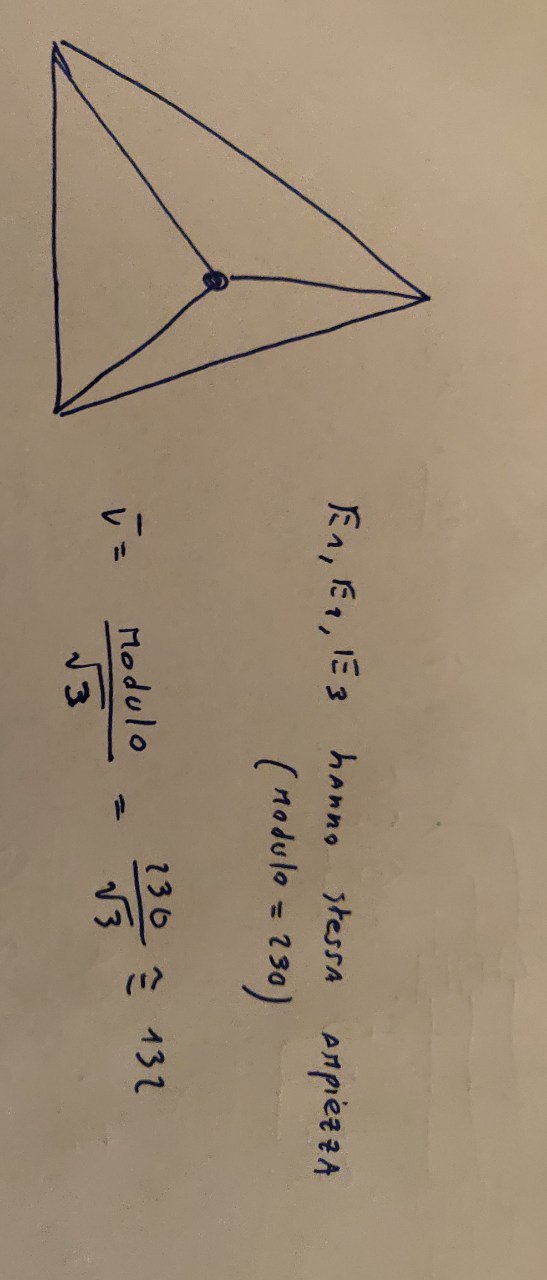 E1, E2, E3 hanno stessa ampiezza
(modulo = 230)
V̄ = modulo/√3 = 230/√3 ≅ 132